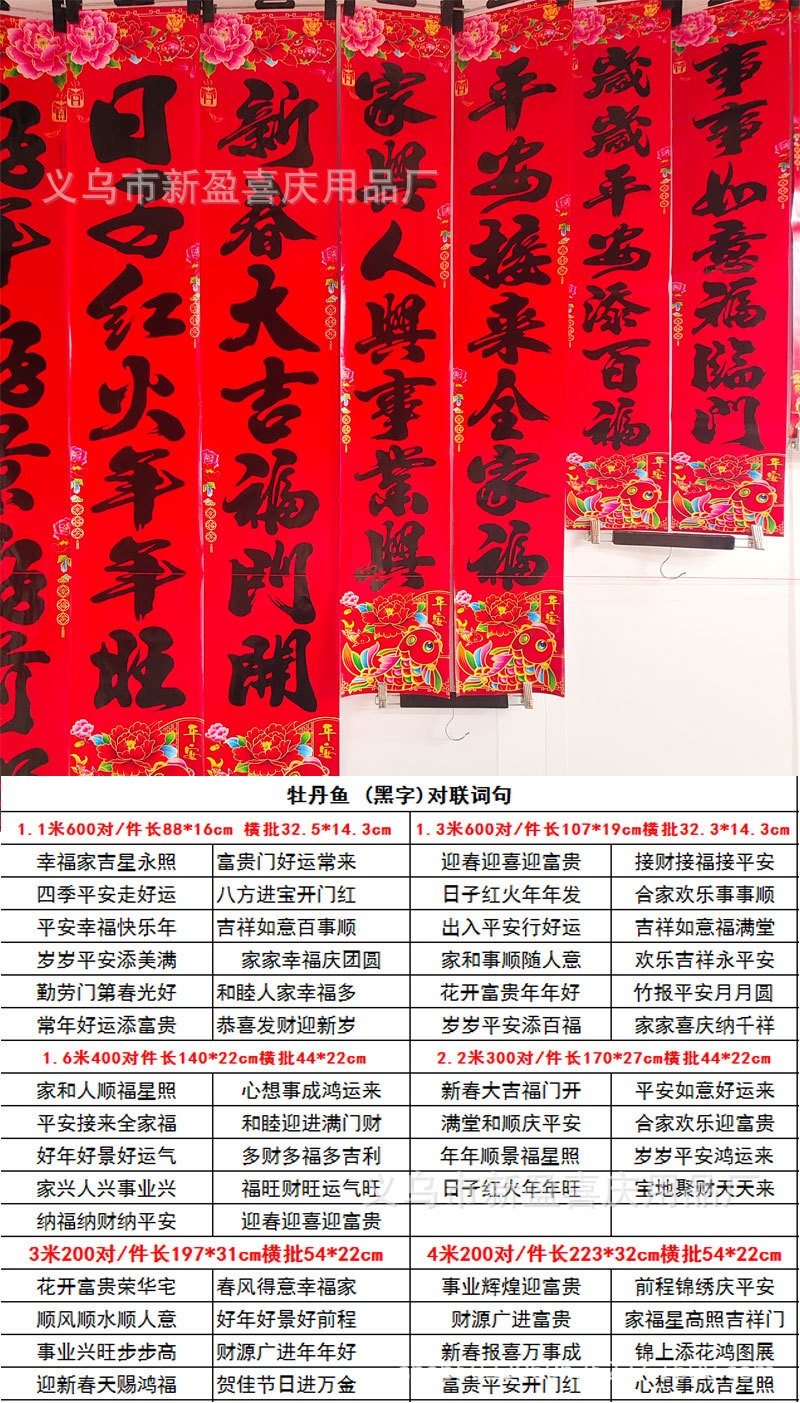 事事如意福臨门
歲歲平安添百福
平安接来全家福
家興人興事業興
新春大吉福门開
日子红火年年旺
义乌市新盈喜庆用品厂
牡丹鱼 (黑字)对联词句
1.1米600对/件长88*16cm 横批32.5*14.3cm 1.3米600对/件长107*19cm横批32.3*14.3cm
幸福家吉星永照 富贵门好运常来 迎春迎喜迎富贵 接财接福接平安
四季平安走好运 八方进宝开门红 日子红火年年发 合家欢乐事事顺
平安幸福快乐年 吉祥如意百事顺 出入平安行好运 吉祥如意福满堂
岁岁平安添美满 家家幸福庆团圆 家和事顺随人意 欢乐吉祥永平安
勤劳门第春光好 和睦人家幸福多 花开富贵年年好 竹报平安月月圆
常年好运添富贵 恭喜发财迎新岁 岁岁平安添百福 家家喜庆纳千祥
1.6米400对件长140*22cm横批44*22cm 2.2米300对/件长170*27cm横批44*22cm
家和人顺福星照 心想事成鸿运来 新春大吉福门开 平安如意好运来
平安接来全家福 和睦迎进满门财 满堂和顺庆平安 合家欢乐迎富贵
好年好景好运气 多财多福多吉利 年年顺景福星照 岁岁平安鸿运来
家兴人兴事业兴 福旺财旺运气旺 日子红火年年旺 宝地聚财天天来
义乌市新盈喜庆用品厂
纳福纳财纳平安 迎春迎喜迎富贵
3米200对/件长197*31cm横批54*22cm 4米200对/件长223*32cm横批54*22cm
花开富贵荣华宅 春风得意幸福家 事业辉煌迎富贵 前程锦绣庆平安
顺风顺水顺人意 好年好景好前程 财源广进富贵 家福星高照吉祥门
事业兴旺步步高 财源广进年年好 新春报喜万事成 锦上添花鸿图展
迎新春天赐鸿福 贺佳节日进万金 富贵平安开门红 心想事成吉星照